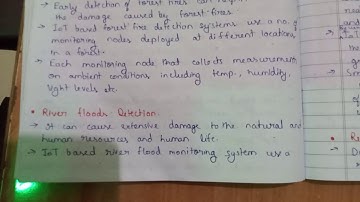 → Early detection of forest fires can
the damage caused by forest fires.
→ IoT based forest fire detection systems use a no. of
monitoring nodes deployed at different locations
in a forest.
→ Each monitoring node that collects measurements
on ambient conditions including temp., humidity,
light levels etc.
• River floods Detection:
→ It can cause extensive damage to the natural and
human resources and human life.
→ IoT based river flood monitoring system use a